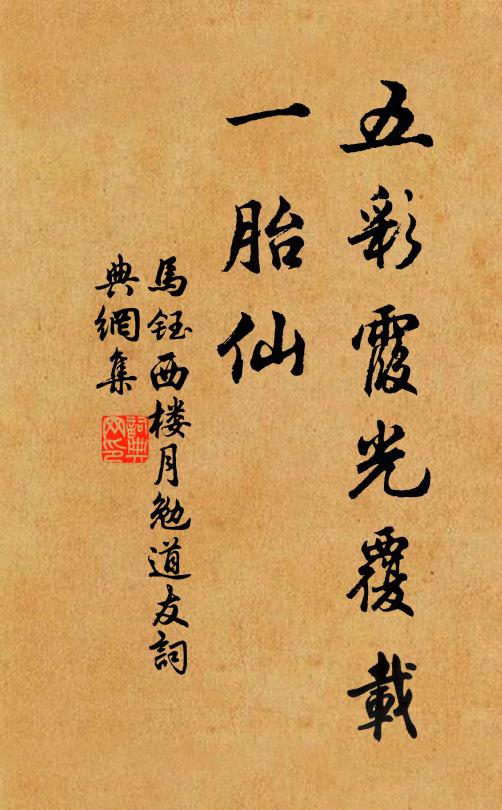 五彩霞光覆載
一胎仙
馬鈺西楼月勉道友詞
典網集
詞典网印